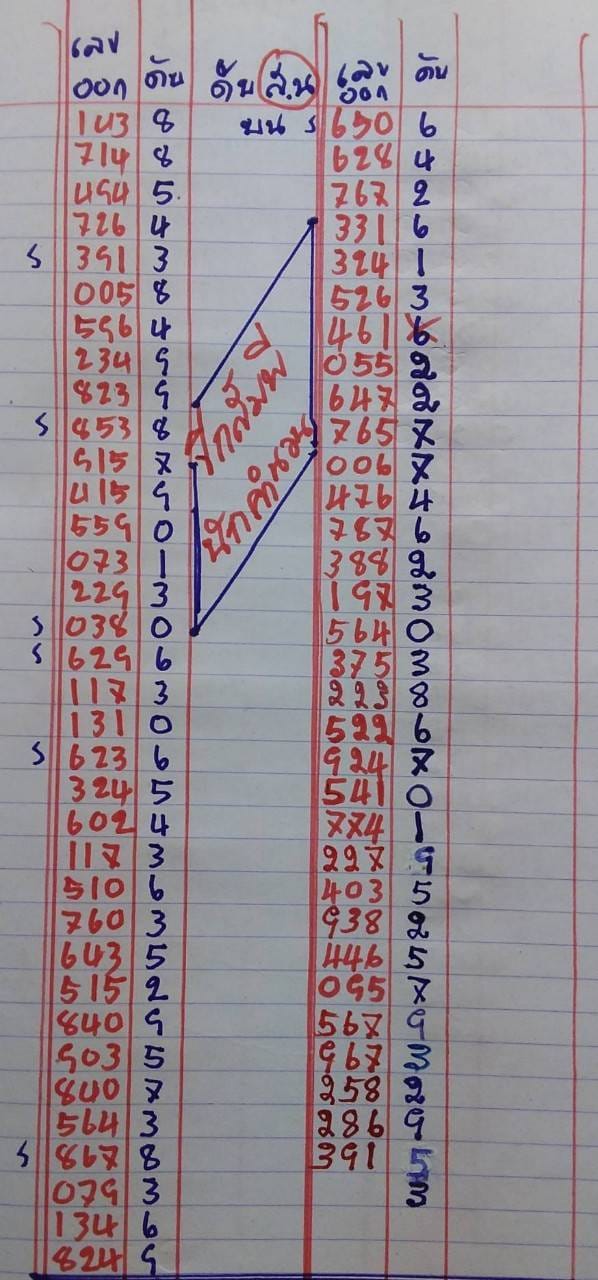 เลข ออก ดับ ดับ ส.น บน s เลข ออก ดับ
143 8 650 6
714 8 628 4
494 5 767 2
726 4 331 6
s 391 3 324 1
005 8 526 3
596 4 461 6
234 9 055 2
823 9 647 2
s 853 8 765 7
915 7 006 7
415 9 476 4
559 0 787 6
073 1 388 2
229 3 197 3
s 038 0 564 0
s 629 6 375 3
117 3 223 8
131 0 522 6
s 623 6 924 7
324 5 541 0
602 4 774 1
117 3 227 9
510 6 403 5
760 3 938 2
643 5 446 5
515 2 095 7
840 9 567 9
903 5 967 3
840 7 258 2
564 3 286 9
s 867 8 391 5
079 3 3
134 6
824 9
นักคำนวน